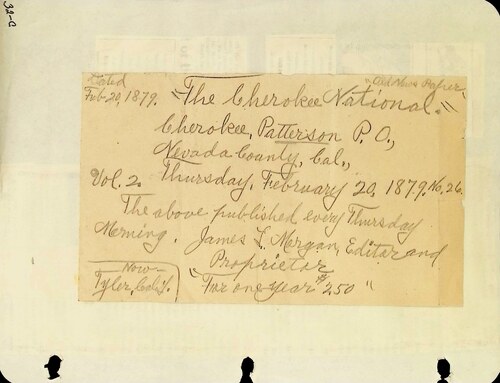 32-C
Dated
Feb 20, 1879.
"Old News Paper"
"The Cherokee National."
Cherokee, Patterson P.O.,
Nevada County, Cal.,
Vol. 2. Thursday, February 20, 1879. No. 26.
The above published every Thursday
Morning. James L. Morgan, Editor and
Proprietor
"For one year $2.50"
Now-
Tyler, Cal.